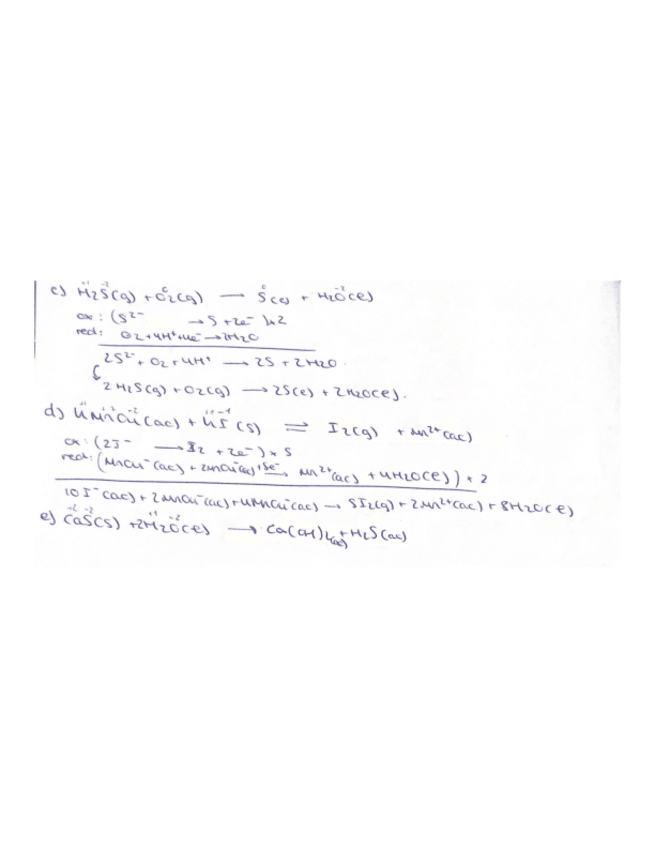 c) H₂S(g) + O₂(g) → S(s) + H₂O(l)
ox: (S²⁻ → S + 2e⁻) x2
red: O₂ + 4H⁺ + 4e⁻ → 2H₂O
2S²⁻ + O₂ + 4H⁺ → 2S + 2H₂O.
2H₂S(g) + O₂(g) → 2S(s) + 2H₂O(l).
d) KMnO₄(ac) + KI(s) ⇌ I₂(g) + Mn²⁺(ac)
ox: (2I⁻ → I₂ + 2e⁻) x 5
red: (MnO₄⁻(ac) + +5e⁻ → Mn²⁺(ac) + 4H₂O(l)) x 2
10I⁻(ac) + 2MnO₄⁻(ac) + → 5I₂(g) + 2Mn²⁺(ac) + 8H₂O(l)
e) CaS(s) + 2H₂O(l) → Ca(OH)₂(ac) + H₂S(ac)